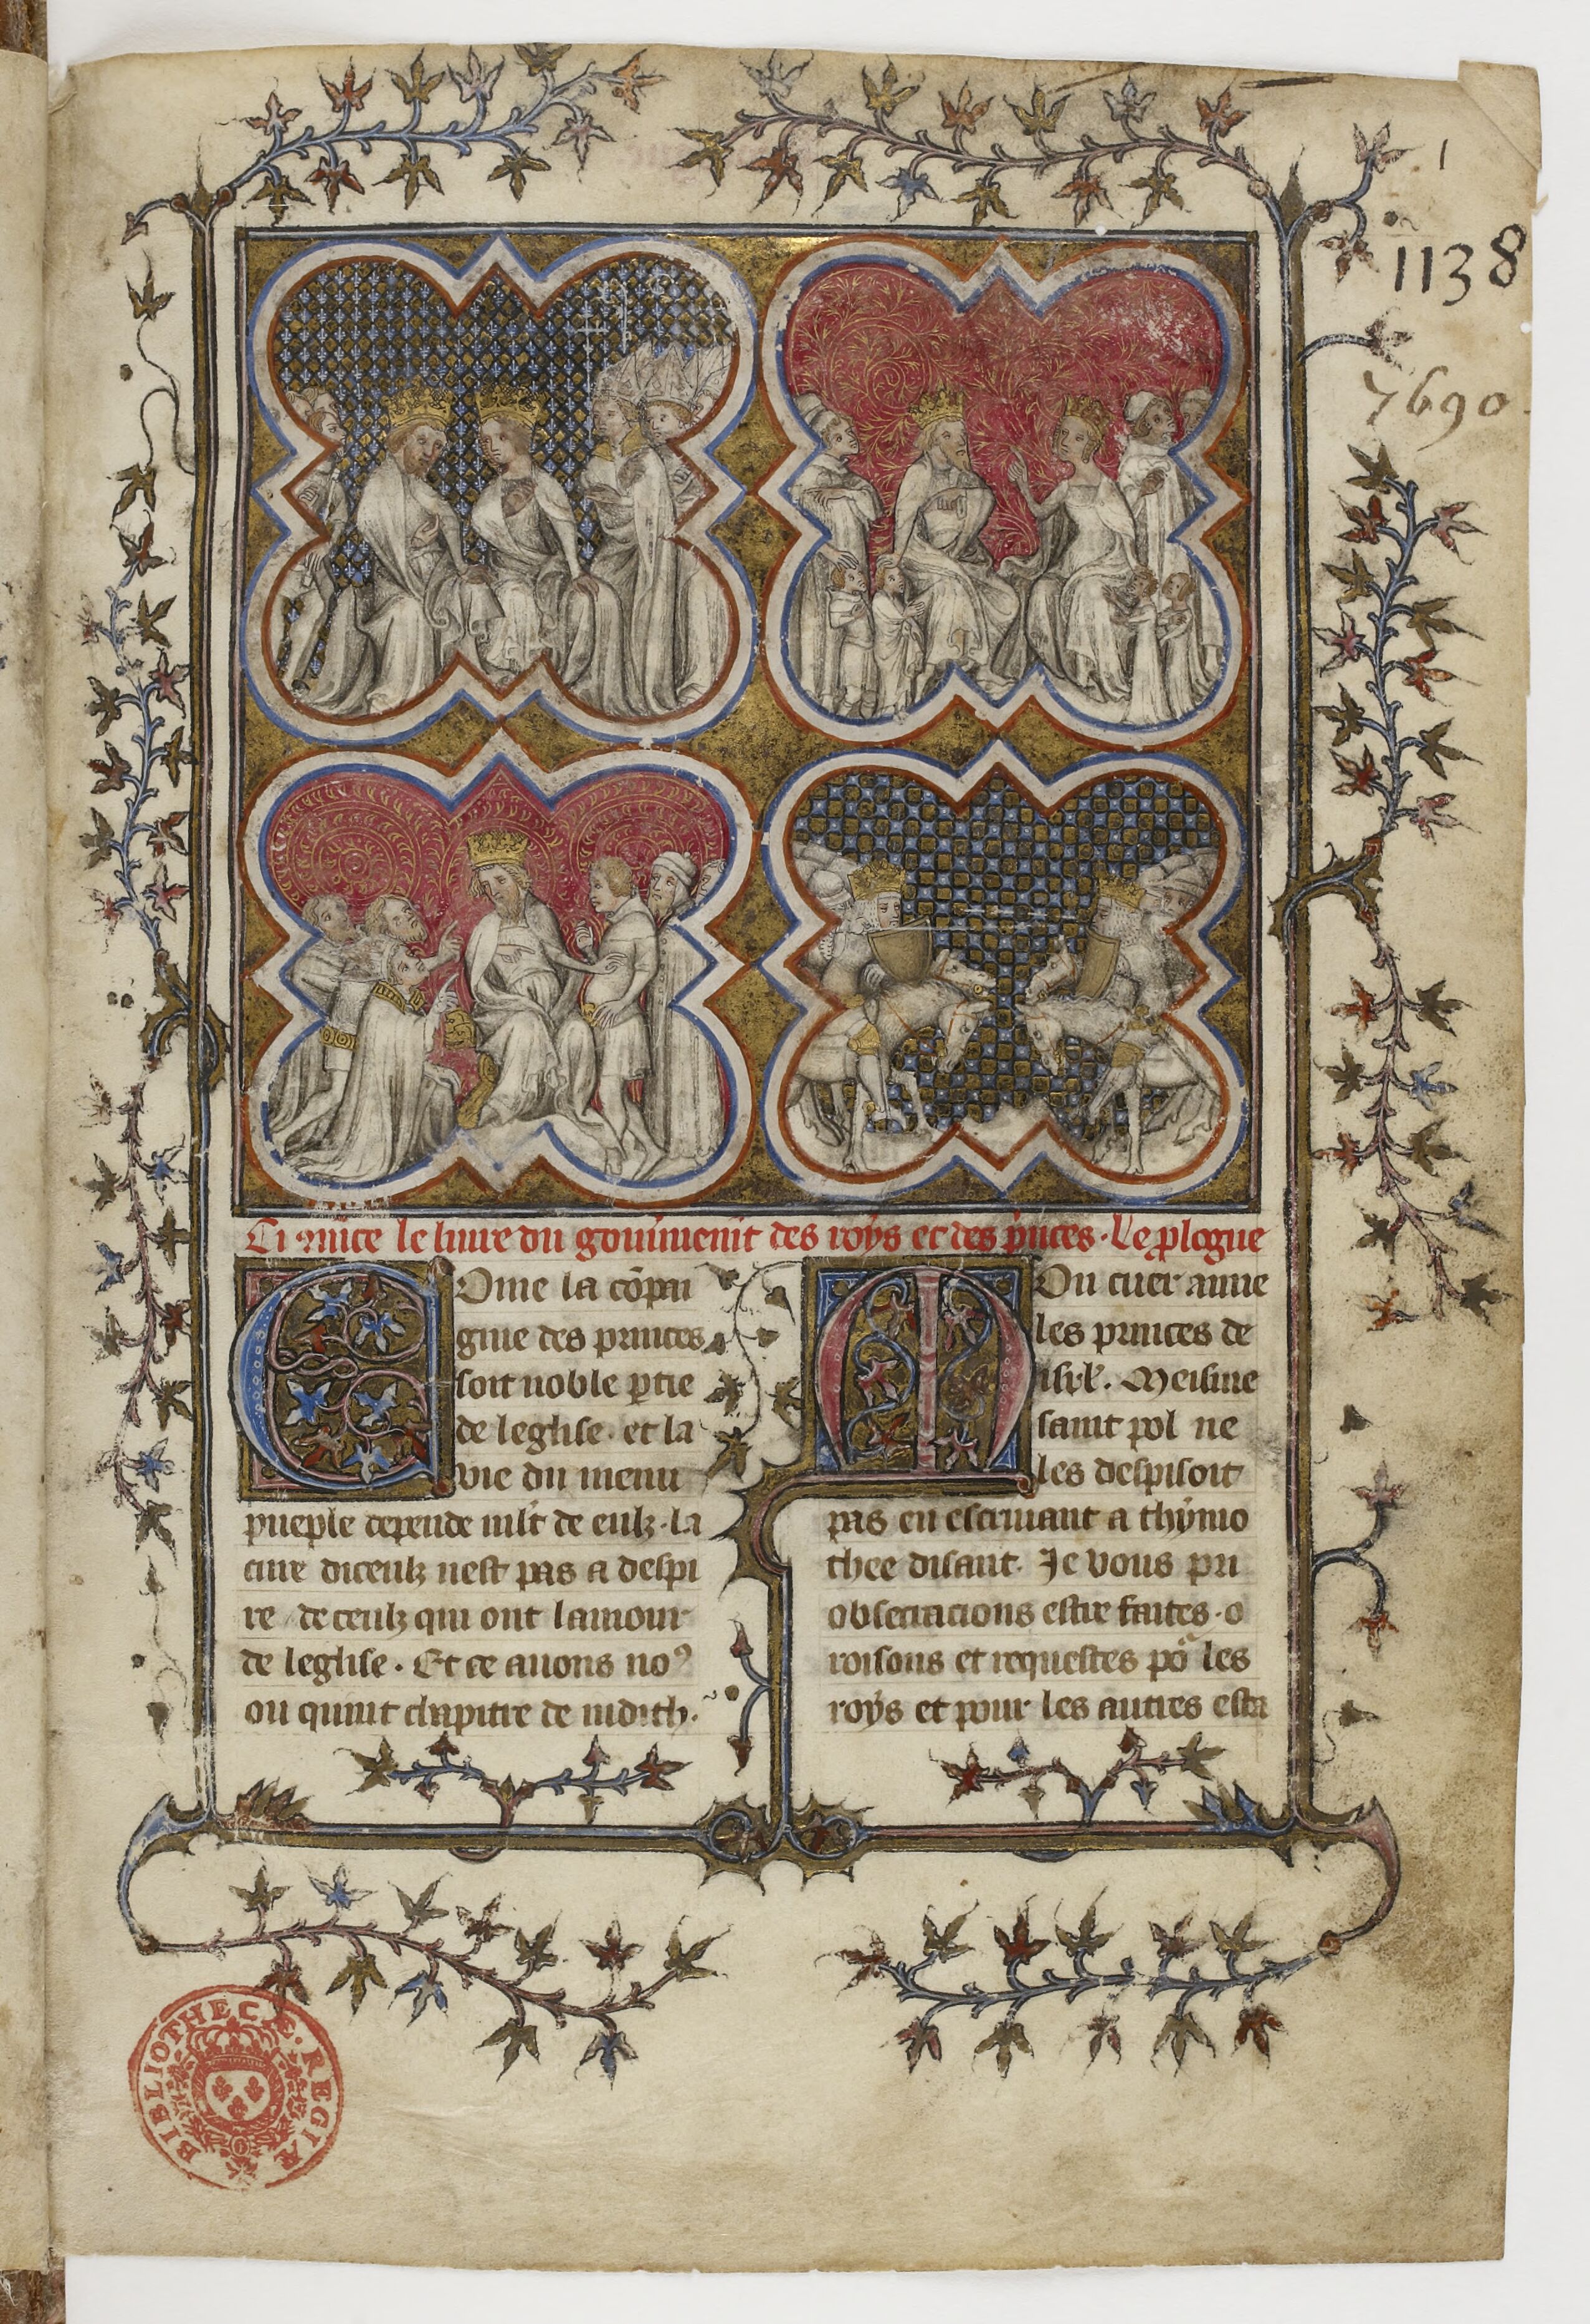 1
1138
7690
Ci ꝯmēce le liure du gouũnemēt des roys et des p̃nces. Le ꝓlogue
Cõme la cõpai
gnie des princes
soit noble ptie
de leglise. et la
vie du menu
pueple depende mlt de eulz. la
cure diceulz nest pas a despi
re de ceulz qui ont lamour
de leglise. Et ce auons noꝰ
ou quint chapitre de iudith.
Mon cuer aime
les princes de
isrl. Meisme
saint pol ne
les despisoit
pas en escriuant a thymo
thee disant. Je vous pri
obsecracions estre faites. o
roisons et requestes po les
roys et pour les autres esta
BIBLIOTHECÆ REGIÆ